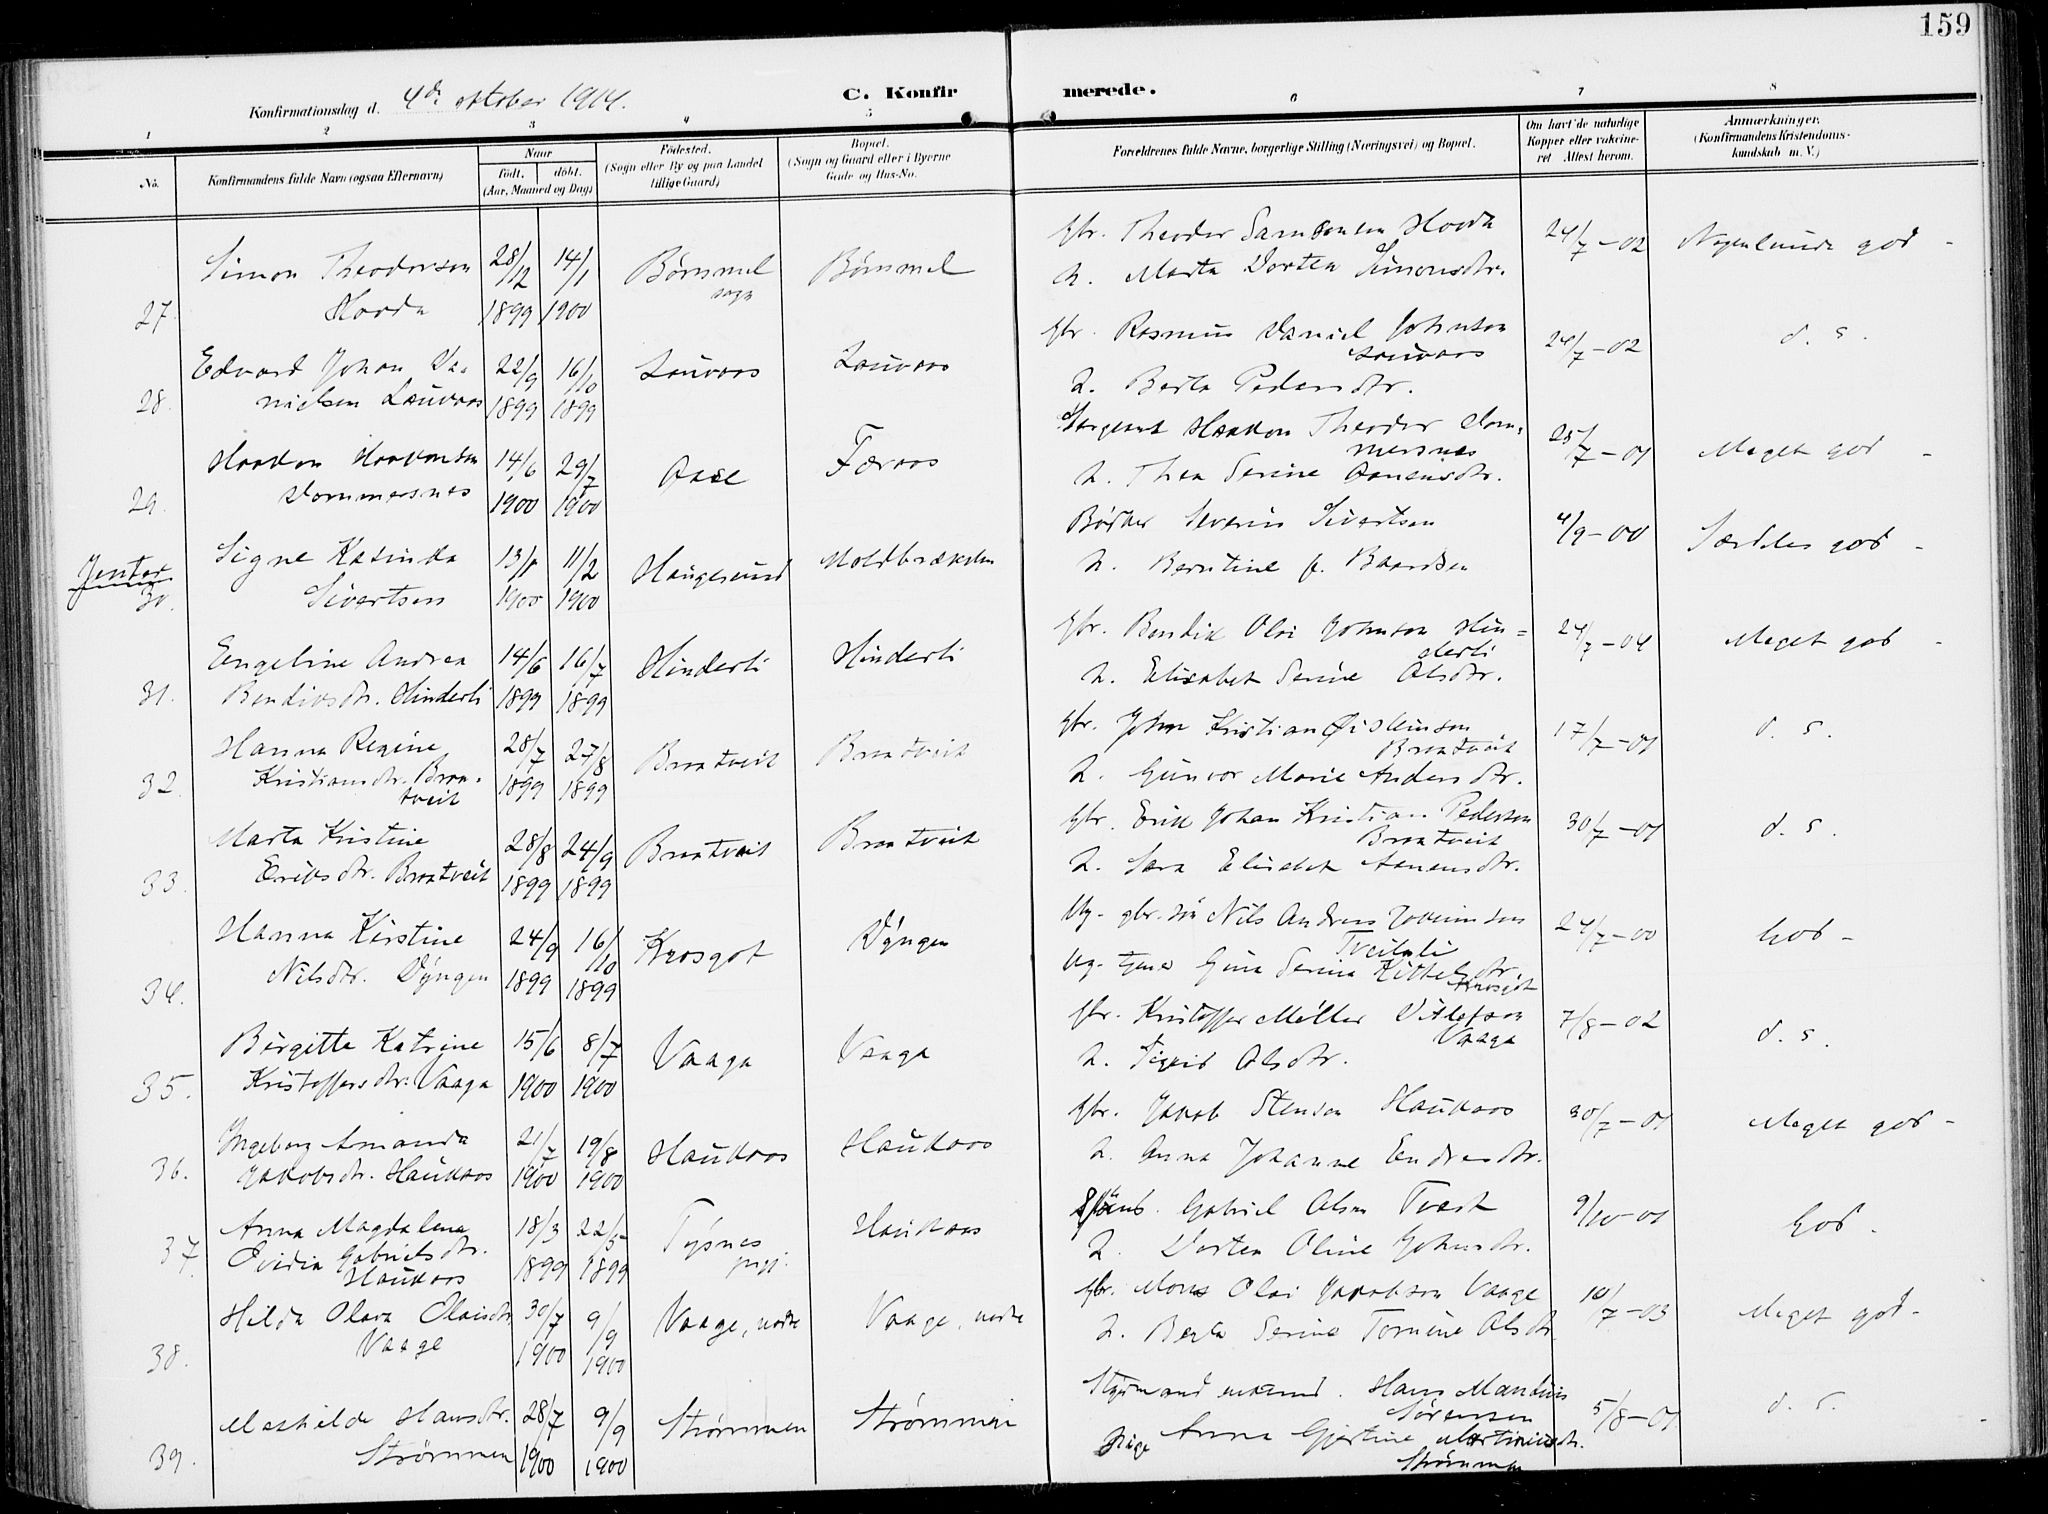 159
Konfirmationsdag d. 4de oktober 1914.
C. Konfirmerede.
1 2 3 4 5 6 7 8
No.
Konfirmandens fulde Navn (ogsaa Efternavn)
Naar
født. døbt.
(Aar, Maaned og Dag)
Fødested.
(Sogn eller By og paa Landet
tillige Gaard)
Bopæl.
(Sogn og Gaard eller i Byerne
Gade og Hus-No.
Forældrenes fulde Navne, borgerlige Stilling (Næringsvei) og Bopæl.
Om havt de naturlige
Kopper eller vakcine-
ret Attest herom.
Anmærkninger.
(Konfirmandens Kristendoms-
kundskab m. V.)
27. Simon Theodorsen 28/12 14/1 Bømmel Bømmel
Hovda 1899 1900 sogn
gbr. Theodor Samsonsen Hovda 24/7-02 Nogenlunde god -
h. Marta Dortea Simonsdtr.
28. Edvard Johan Da- 22/9 16/10 Lauvaas Lauvaas
nielsen Lauvaas 1899 1899
gbr. Rasmus Daniel Johnson 24/7-02 d. s.
Lauvaas
h. Berta Pedersdtr.
29. Haakon Haakonsen 14/6 29/7 Aase Færaas
Dommersnes 1900 1900
Sergeant Haakon Theodor Dom- 25/7-01 Meget god -
mersnes
h. Thea Serine Aanensdtr.
Jenter
30. Signe Kasinka 13/1 11/2 Haugesund Moldbrækken
Sivertsen 1900 1900
Bødker Severin Sivertsen 4/9-00 Særdeles god -
h. Berntine f. Baardsen
31. Engeline Andrea 14/6 16/7 Hinderli Hinderli
Bendiksdtr. Hinderli 1899 1899
gbr. Bendik Olai Johnson Hin- 24/7-04 Meget god -
derli
h. Elisabet Serine Olsdtr.
32. Hanna Regine 28/7 27/8 Braatveit Braatveit
Kristiansdtr. Braa- 1899 1899
tveit
gbr. John Kristian Øisteinson 17/7-01 d. s.
Braatveit
h. Gunvor Marie Andersdtr.
33. Marta Kristine 28/8 24/9 Braatveit Braatveit
Eriksdtr. Braatveit 1899 1899
gbr. Erik Johan Kristian Pederson 30/7-01 d. s.
Braatveit
h. Sara Elisabet Aanensdtr.
34. Hanna Kirstine 24/9 16/10 Krosgot Dyngen
Nilsdtr. Dyngen 1899 1899
Ug. gbr. søn Nils Andreas 24/7-00 God -
Ug. Gina Serina Kittelsdtr.
35. Birgitte Katrine 15/6 8/7 Vaaga Vaaga
Kristoffersdtr. Vaaga 1900 1900
gbr. Kristoffer Møller Ditlefson 7/8-02 d. s.
Vaaga
h. Sigrid Olsdtr.
36. Ingeborg Amanda 21/7 19/8 Haukaas Haukaas
Jakobsdtr. Haukaas 1900 1900
gbr. Jakob Stenson Haukaas 30/7-01 Meget god -
h. Anna Johanne Endresdtr.
37. Anna Magdalena 18/3 22/5 Tysnes Haukaas
Ovidia Gabrielsdtr. 1899 1899 prgj.
Haukaas
Gabriel Olsen Tvedt 9/10-01 God -
h. Dortea Oline Johnsdtr.
38. Hilda Olava Olaisdtr. 30/7 9/9 Vaage, nedre Vaage, nedre
Vaage 1900 1900
gbr. Mons Olai Jakobson Vaage 10/7-03 Meget god -
h. Berta Serine Tomine Olsdtr.
39. Mathilde Hansdtr. 28/7 9/9 Strømmen Strømmen
Strømmen 1900 1900
Styrmand enkemd. Hans Mandius 5/8-01 d. s.
Sørensen
Pige Anna Gjertine Martiniusdtr.
Strømmen